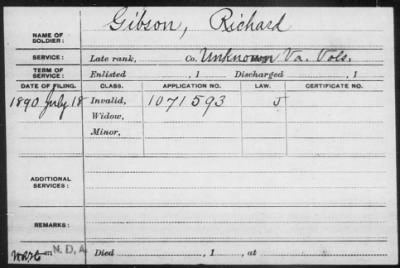 Gibson, Richard
NAME OF SOLDIER:
SERVICE: Late rank, Co. Unknown Va. Vols.
TERM OF SERVICE: Enlisted , 1 Discharged , 1
DATE OF FILING. CLASS. APPLICATION NO. LAW. CERTIFICATE NO.
1890 July 18 Invalid, 1071593 J
Widow,
Minor,
ADDITIONAL SERVICES:
REMARKS:
on N.D.A.
Died , 1 , at